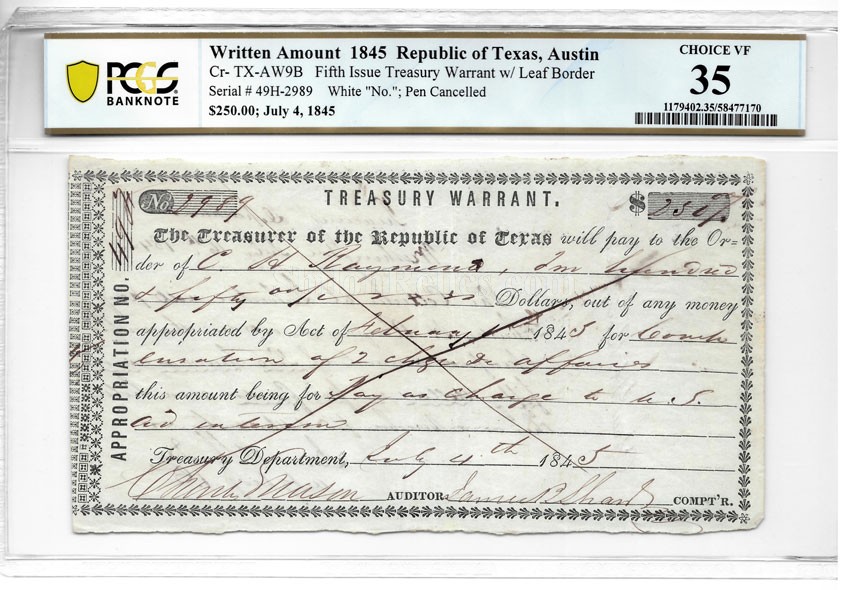 Written Amount 1845 Republic of Texas, Austin
CHOICE VF
Cr- TX-AW9B Fifth Issue Treasury Warrant w/ Leaf Border
35
PCGS
BANKNOTE
Serial # 49H-2989 White "No."; Pen Cancelled
1179402.35/58477170
$250.00; July 4, 1845
No. 2989
TREASURY WARRANT.
$ 250
The Treasurer of the Republic of Texas will pay to the Or=
der of C. H. Raymond, Two Hundred
& fifty Dollars, out of any money
appropriated by Act of February 1845 for Comp
ensation of affaires
this amount being for Pay as Charge to U. S.
ad interim
Treasury Department, July 4th 1845
Charles Mason AUDITOR James B Shaw COMPT'R.
APPROPRIATION NO.